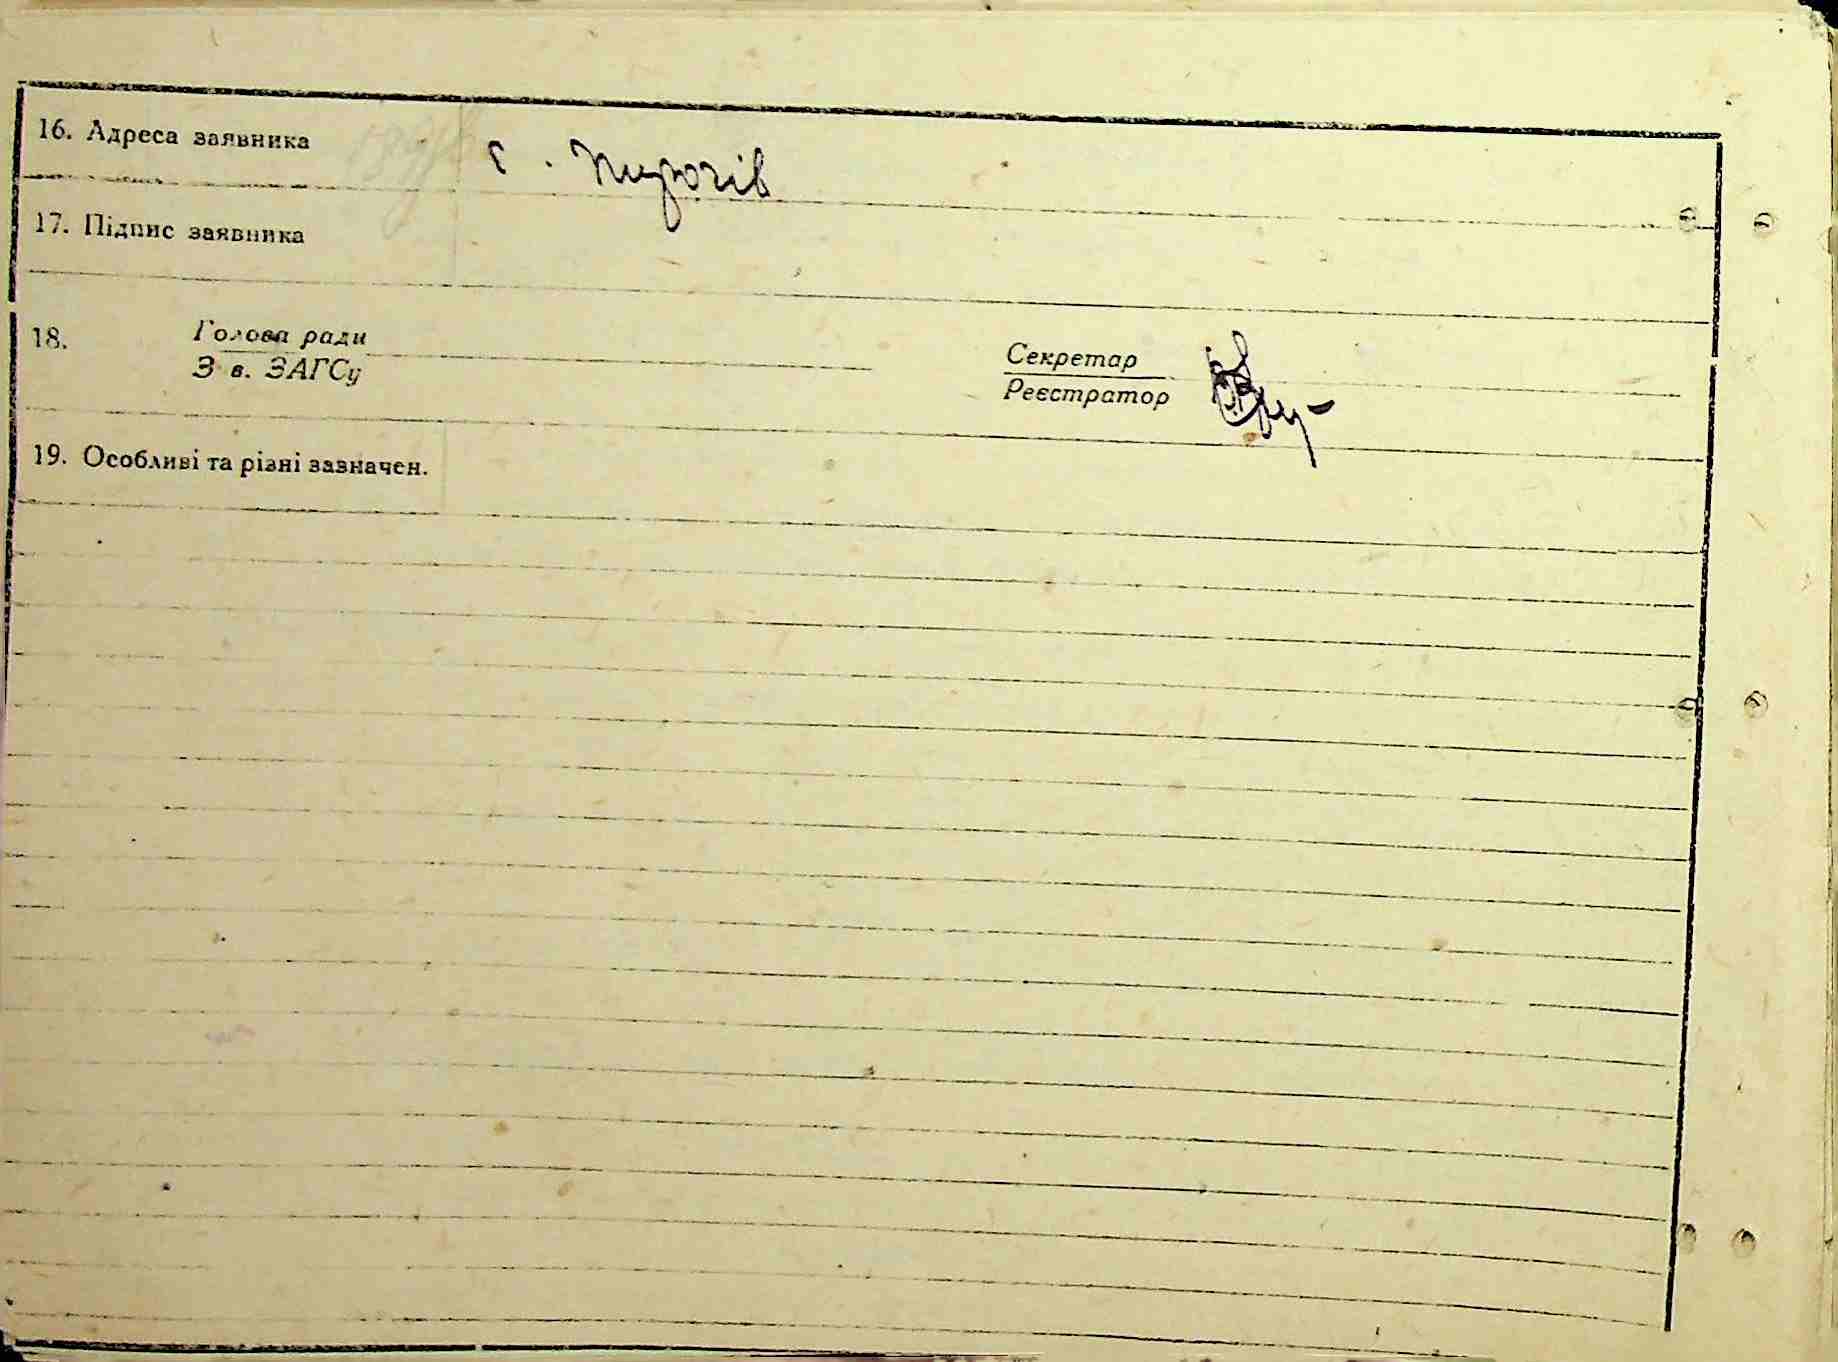 16. Адреса заявника с. Пирогів
17. Підпис заявника
18. Голова ради Секретар
З в. ЗАГСу Реєстратор
19. Особливі та різні зазначен.